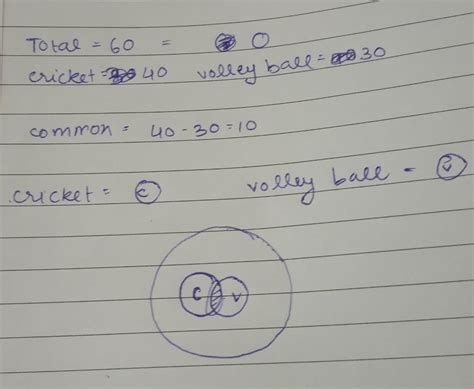 Total = 60 = O
cricket = 40 volley ball = 30
common = 40 - 30 = 10
cricket = C volley ball = V
C V